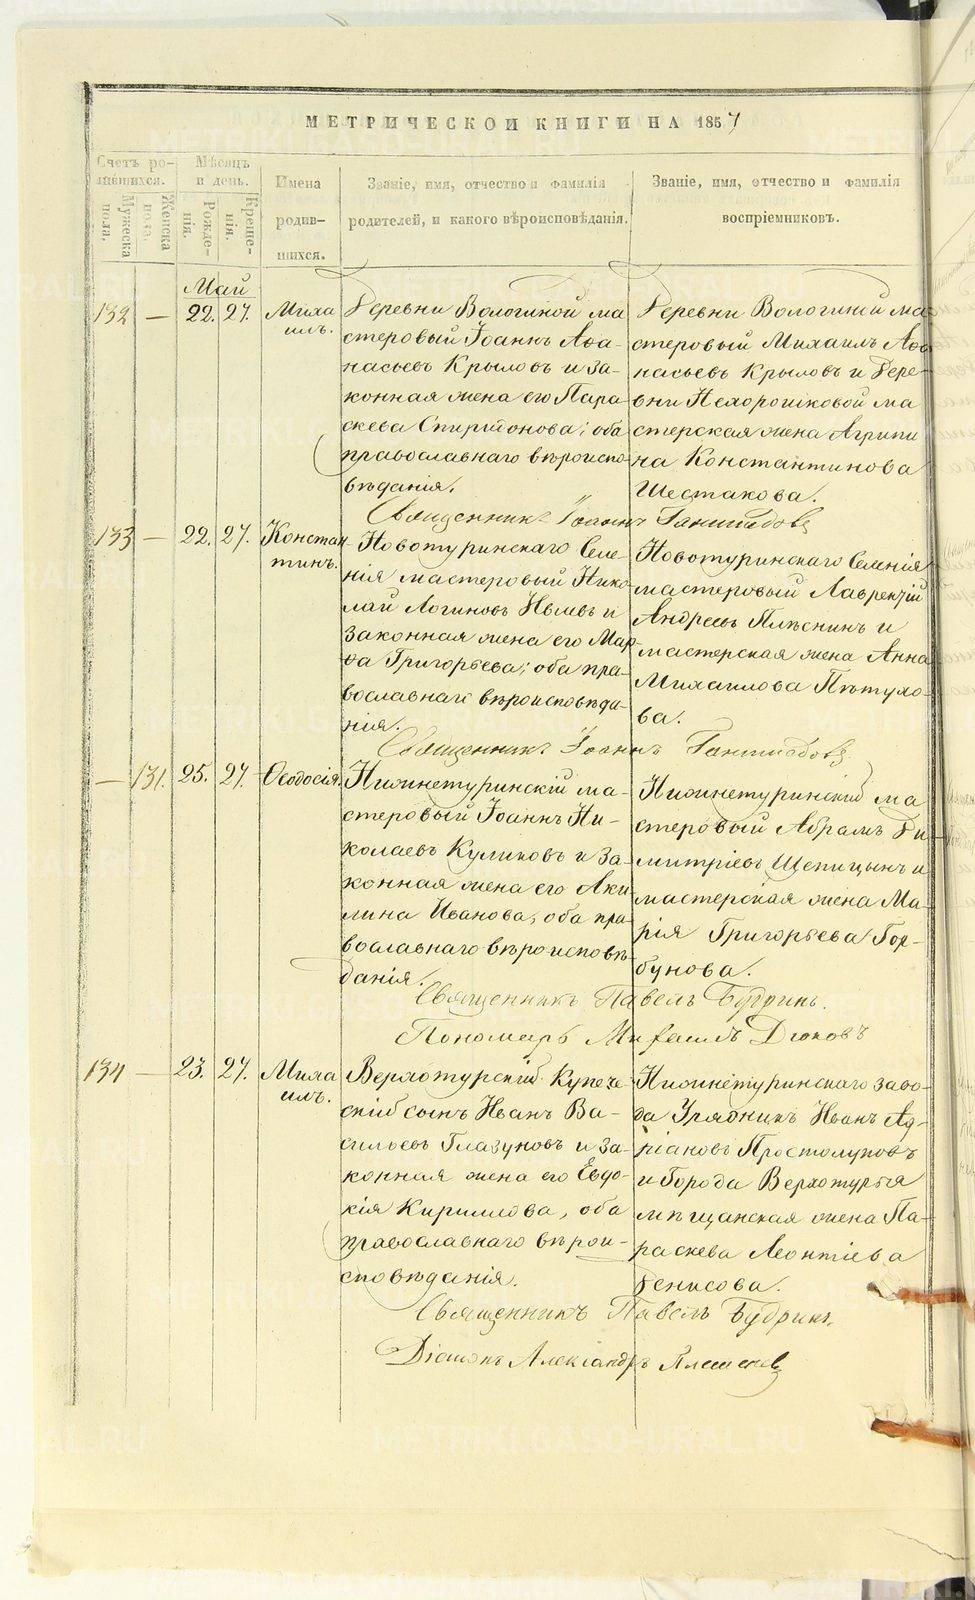 МЕТРИЧЕСКОЙ КНИГИ НА 1857
Счетъ родившихся.
Мужеска пола.
Женска пола.
Мѣсяцъ и день.
Рожденія.
Крещенія.
Имена
родив-
шихся.
Званіе, имя, отчество и фамилія
родителей, и какого вѣроисповѣданія.
Званіе, имя, отчество и фамилія
воспріемниковъ.
Май
132 — 22. 27. Миха
илъ.
Деревни Вологиной ма
стеровый Іоаннъ Аѳа-
насьевъ Крыловъ и за-
конная жена его Пара
скева Спиридонова; оба
православнаго вѣроиспо
вѣданія.
Деревни Вологиной ма
стеровый Михаилъ Аѳа
насьевъ Крыловъ и дере-
вни Нехорошковой ма
стерская жена Агрипи
на Константинова
Шестакова.
Священникъ Іоаннъ
133 — 22. 27. Констан
тинъ.
Новотуринскаго Селе-
нія мастеровый Нико
лай Логиновъ и
законная жена его Мар
ѳа Григорьева; оба пра-
вославнаго вѣроисповѣда-
нія.
Новотуринскаго Селенія
мастеровый Лаврентій
Андреевъ Плѣснинъ и
мастерская жена Анна
Михаилова Пѣтухо-
ва.
Священникъ Іоаннъ
— 131. 25. 27. Ѳеодосія.
Нижнетуринскій ма-
стеровый Іоаннъ Ни-
колаевъ Куликовъ и за-
конная жена его Аки
лина Иванова, оба пра-
вославнаго вѣроисповѣ-
данія.
Нижнетуринскій ма
стеровый Абрамъ Ди-
митріевъ Щепицынъ и
мастерская жена Ма-
рія Григорьева Гор-
бунова.
Священникъ Павелъ Будринъ.
Пономарь Михаилъ Дюковъ
134 — 23. 27. Миха
илъ.
Верхотурскій Купече
скій сынъ Иванъ Ва-
сильевъ Глазуновъ и за-
конная жена его Евдо-
кія Кириллова, оба
православнаго вѣрои-
сповѣданія.
Нижнетуринскаго заво-
да Урядникъ Иванъ Ад-
ріановъ Простолуповъ
и города Верхотурья
мѣщанская жена Па-
раскева Леонтіева
Денисова.
Священникъ Павелъ Будринъ.
Діаконъ Александръ